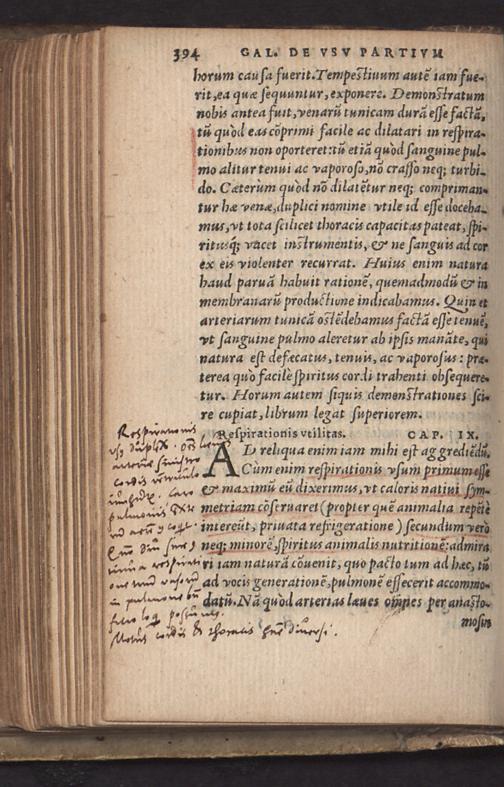 394 GAL. DE VSV PARTIVM
horum causa fuerit. Tempestiuum autē iam fue-
rit, ea quæ sequuntur, exponere. Demonstratum
nobis antea fuit, venarū tunicam durā esse factā,
tū quòd eas cōprimi facile ac dilatari in respira-
tionibus non oporteret: tū etiā quòd sanguine pul-
mo alitur tenui ac vaporoso, nō crasso neq; turbi-
do. Cæterùm quòd nō dilatētur neq; compriman-
tur hæ venæ, duplici nomine vtile id esse doceba-
mus, vt tota scilicet thoracis capacitas pateat, spi-
ritusq; vacet instrumentis, & ne sanguis ad cor
ex eis violenter recurrat. Huius enim natura
haud paruā habuit rationē, quemadmodū & in
membranarū productione indicabamus. Quin et
arteriarum tunicā ostēdebamus factā esse tenuē,
vt sanguine pulmo aleretur ab ipsis manāte, qui
natura est defæcatus, tenuis, ac vaporosus: præ-
terea quò facilè spiritus cordi trahenti obsequere-
tur. Horum autem siquis demonstrationes sci-
re cupiat, librum legat superiorem.
Respirationis vtilitas. CAP. IX.
AD reliqua enim iam mihi est aggrediēdū.
Cùm enim respirationis vsum primum esse
& maximū eū dixerimus, vt caloris natiui sym-
metriam cōseruaret (propter quē animalia repētè
intereūt, priuata refrigeratione) secundum verò
neq; minorē, spiritus animalis nutritionē: admira
ri iam naturā cōuenit, quo pacto tum ad hæc, tū
ad vocis generationē, pulmonē effecerit accommo-
datū. Nā quòd arterias læues omnes per anasto-
mosin
Respirationis
cordis
pulmonis
in pulmone
Motus cordis & thoracis